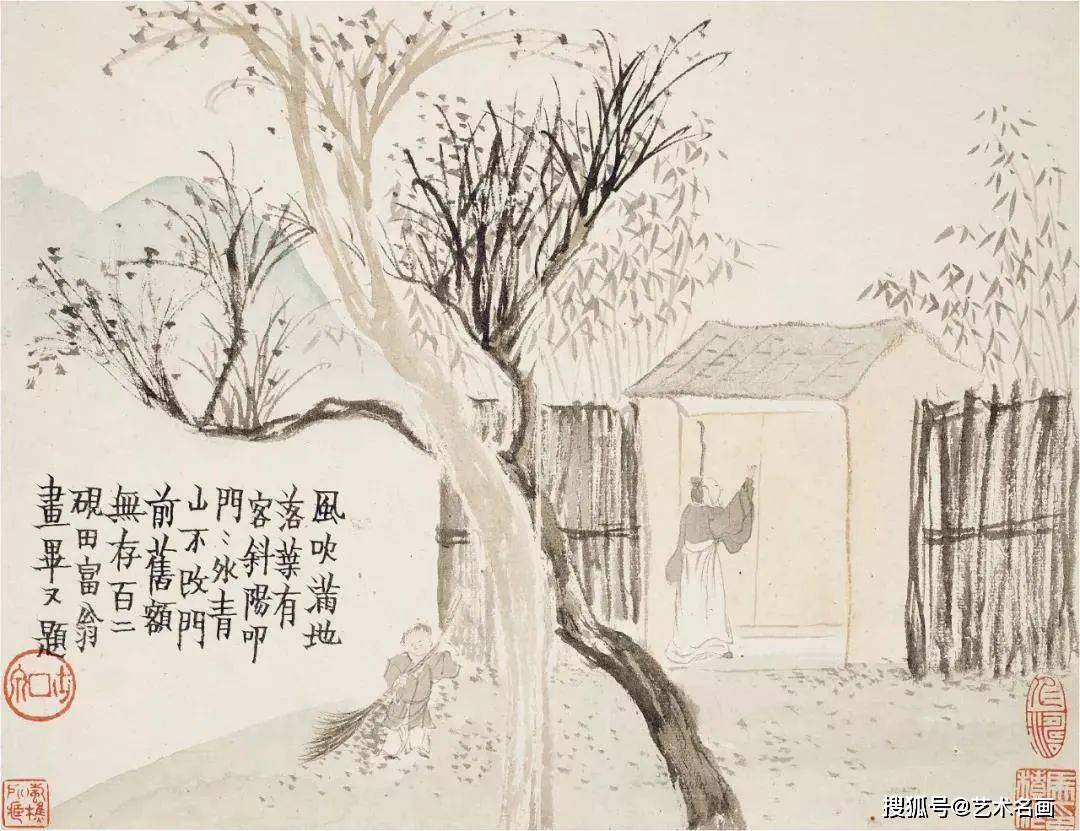 風吹滿地
落葉有
客斜陽叩
門〻外青
山不改門
前舊額
無存百二
硯田富翁
畫畢又題
搜狐号@艺术名画